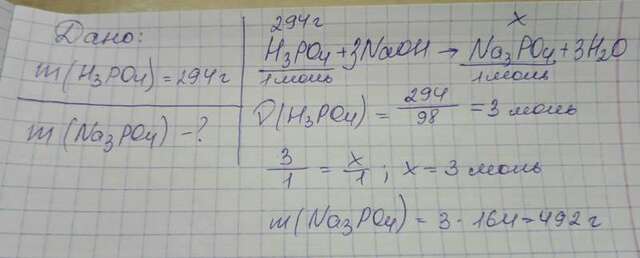 Дано:
m(H₃PO₄) = 294г
m(Na₃PO₄) - ?
294г x
H₃PO₄ + 3NaOH → Na₃PO₄ + 3H₂O
1 моль 1 моль
ν(H₃PO₄) = 294/98 = 3 моль
3/1 = x/1 ; x = 3 моль
m(Na₃PO₄) = 3 · 164 = 492 г